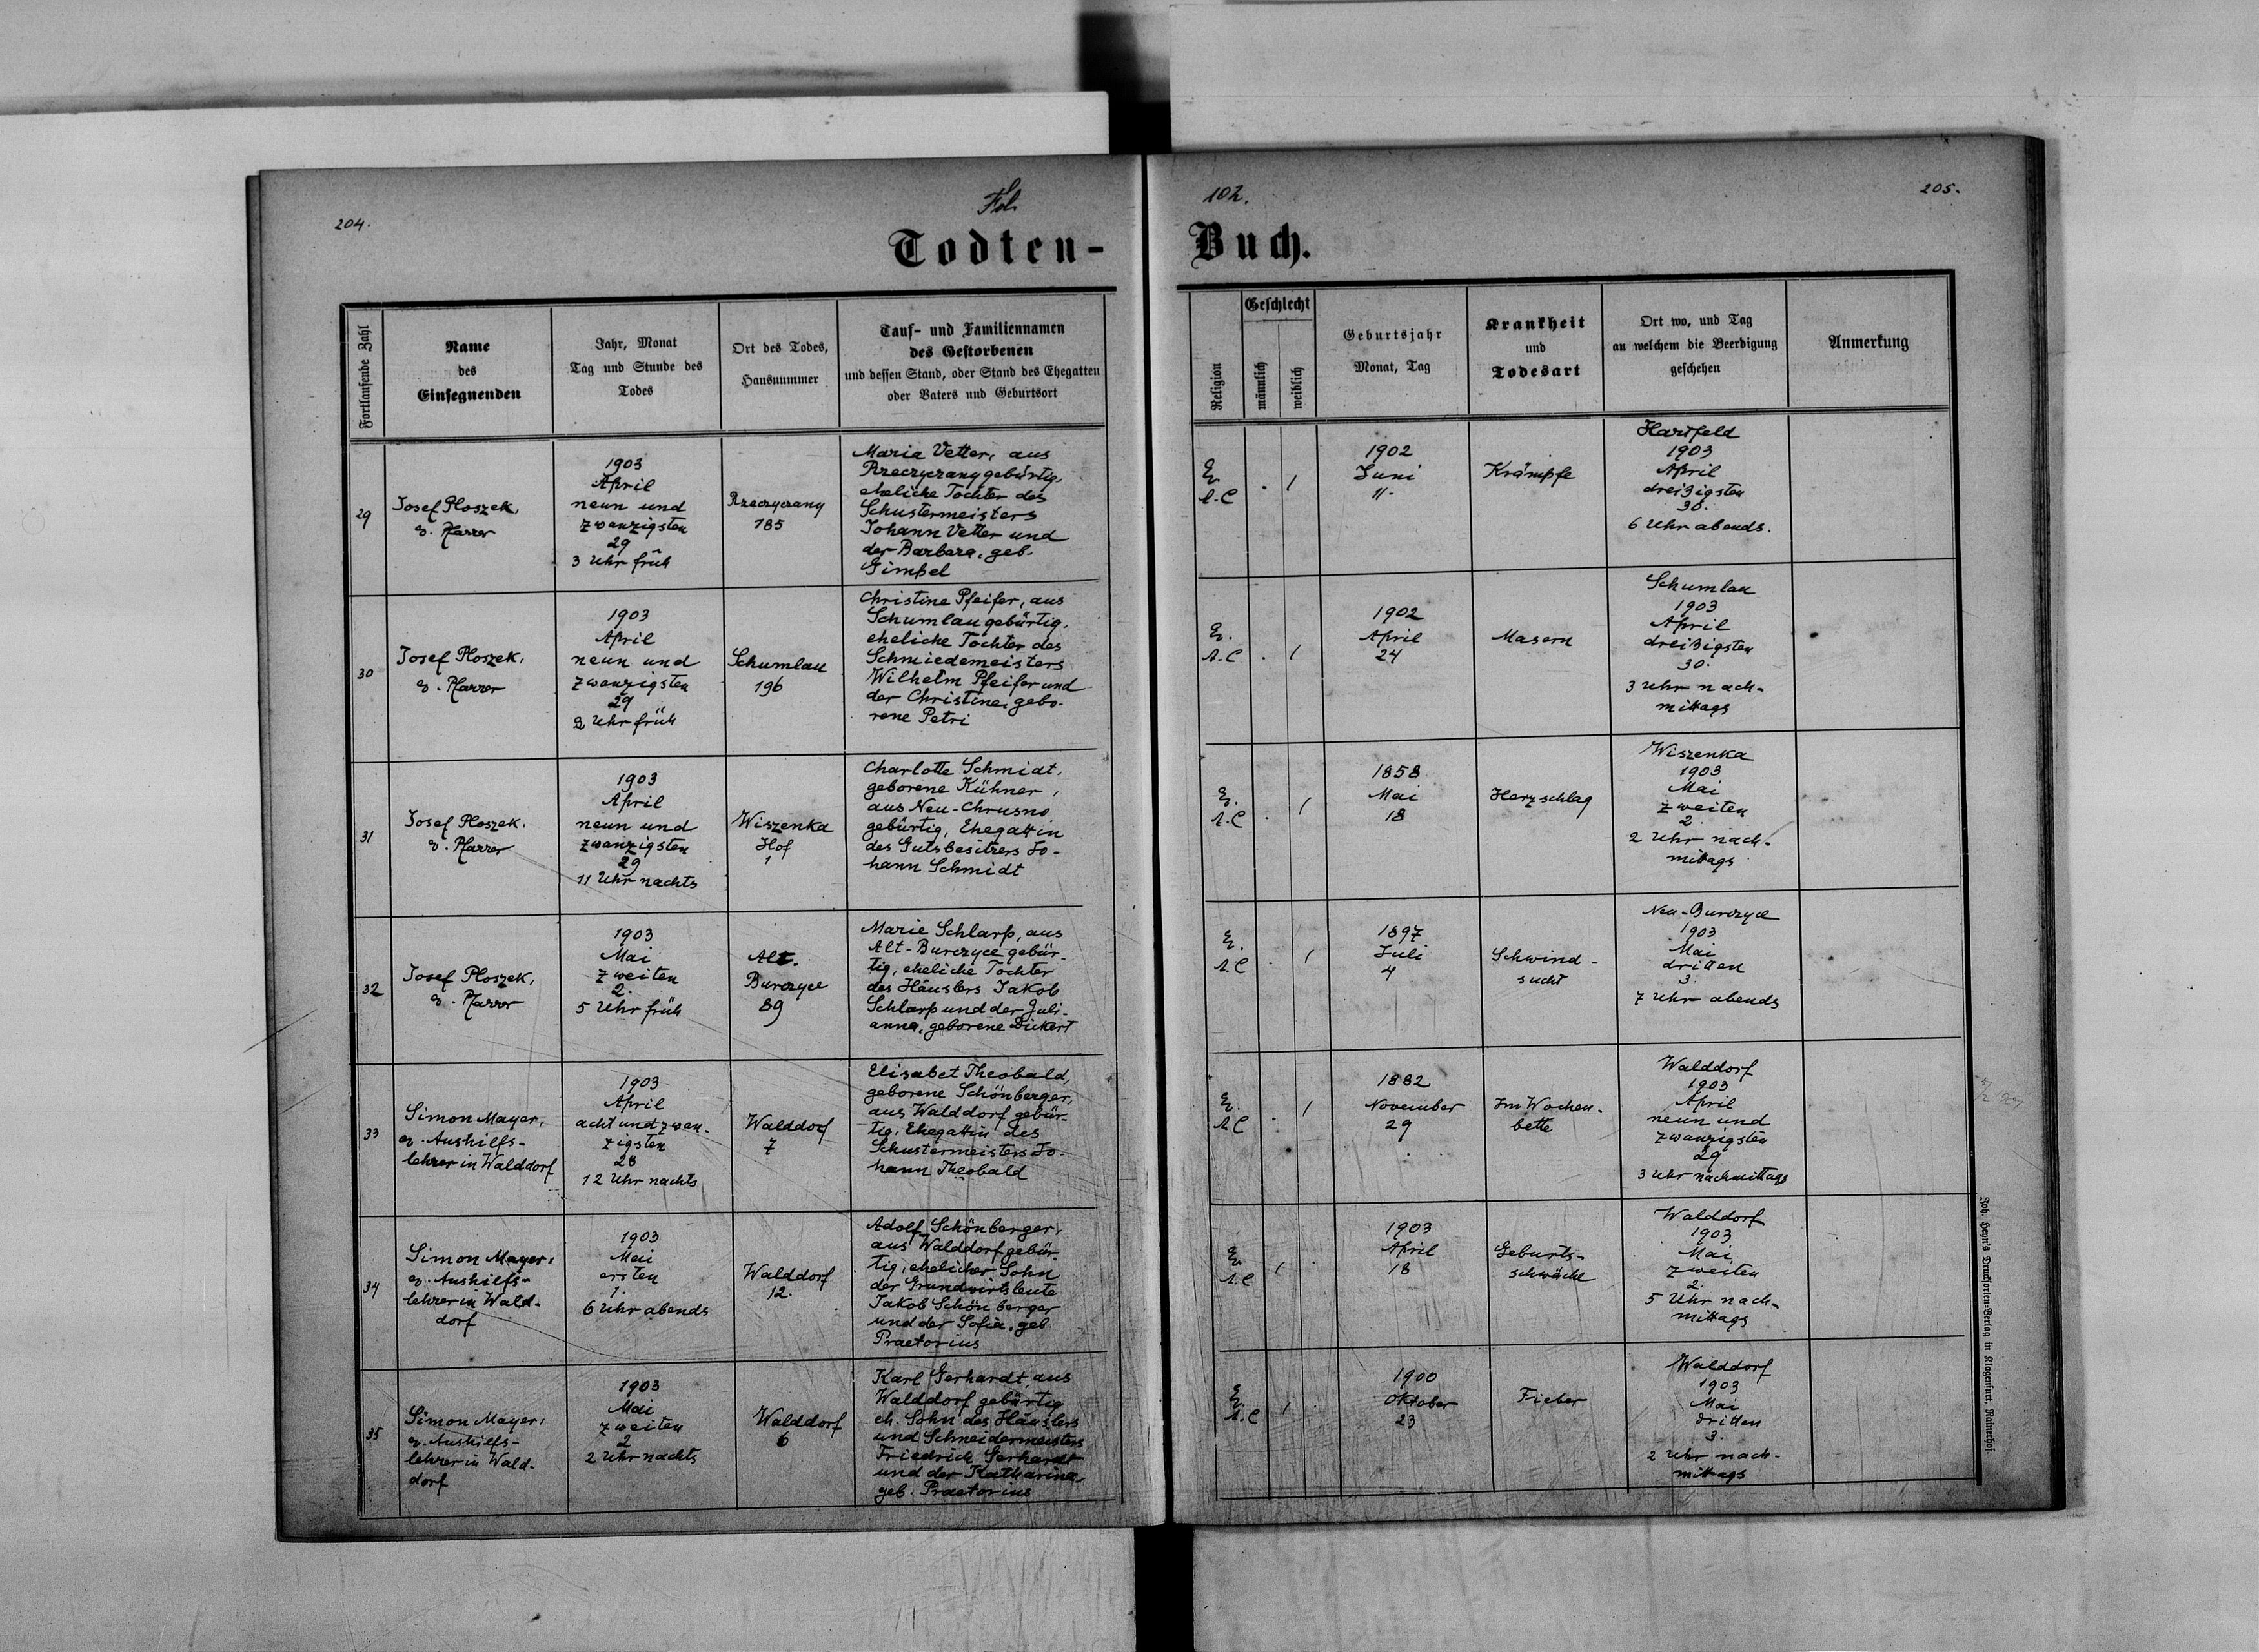 204.
Fol.
102.
205.
Todten-
Buch.
Fortlaufende Zahl
Name
des
Einsegnenden
Jahr, Monat
Tag und Stunde des
Todes
Ort des Todes,
Hausnummer
Tauf- und Familiennamen
des Gestorbenen
und dessen Stand, oder Stand des Ehegatten
oder Vaters und Geburtsort
Religion
Geschlecht
männlich
weiblich
Geburtsjahr
Monat, Tag
Krankheit
und
Todesart
Ort wo, und Tag
an welchem die Beerdigung
geschehen
Anmerkung
29
Josef Ploszek,
ev. Pfarrer
1903
April
neun und
zwanzigsten
29
3 Uhr früh
Rzeczyczany
185
Maria Vetter, aus
Rzeczyczany gebürtig,
eheliche Tochter des
Schustermeisters
Johann Vetter und
der Barbara, geb.
Gimbel
Ev.
A.C
. /
1902
Juni
11.
Krämpfe
Hartfeld
1903
April
dreißigsten
30.
6 Uhr abends.
30
Josef Ploszek,
ev. Pfarrer
1903
April
neun und
zwanzigsten
29
2 Uhr früh
Schumlau
196
Christine Pfeifer, aus
Schumlau gebürtig,
eheliche Tochter des
Schmiedemeisters
Wilhelm Pfeifer und
der Christine, gebo-
rene Petri
Ev.
A.C
. /
1902
April
24
Masern
Schumlau
1903
April
dreißigsten
30.
3 Uhr nach-
mittags
31
Josef Ploszek,
ev. Pfarrer
1903
April
neun und
zwanzigsten
29
11 Uhr nachts
Wiszenka
Hof
1
Charlotte Schmidt,
geborene Kühner,
aus Neu-Chrusno
gebürtig, Ehegattin
des Gutsbesitzers Jo-
hann Schmidt
Ev.
A.C
. /
1858
Mai
18
Herzschlag
Wiszenka
1903
Mai
zweiten
2.
2 Uhr nach-
mittags
32
Josef Ploszek,
ev. Pfarrer
1903
Mai
zweiten
2.
5 Uhr früh
Alt-
Burczyce
89
Marie Schlarp, aus
Alt-Burczyce gebür-
tig, eheliche Tochter
des Häuslers Jakob
Schlarp und der Juli-
anna, geborene Dickert
Ev.
A.C
. /
1897
Juli
4
Schwind-
sucht
Neu-Burczyce
1903
Mai
dritten
3.
7 Uhr abends
33
Simon Mayer,
ev. Aushilfs-
lehrer in Walddorf
1903
April
acht und zwan-
zigsten
28
12 Uhr nachts
Walddorf
7
Elisabet Theobald,
geborene Schönberger,
aus Walddorf gebür-
tig, Ehegattin des
Schustermeisters Jo-
hann Theobald
Ev.
A.C
. /
1882
November
29
Im Wochen-
bette
Walddorf
1903
April
neun und
zwanzigsten
29
3 Uhr nachmittags
34
Simon Mayer,
ev. Aushilfs-
lehrer in Wald-
dorf
1903
Mai
ersten
1.
6 Uhr abends
Walddorf
12.
Adolf Schönberger,
aus Walddorf gebür-
tig, ehelicher Sohn
der Grundwirtsleute
Jakob Schönberger
und der Sofia, geb.
Praetorius
Ev.
A.C
/ .
1903
April
18
Geburts-
schwäche
Walddorf
1903
Mai
zweiten
2.
5 Uhr nach-
mittags
35
Simon Mayer,
ev. Aushilfs-
lehrer in Wald-
dorf
1903
Mai
zweiten
2
2 Uhr nachts
Walddorf
6
Karl Gerhardt, aus
Walddorf gebürtig
eh. Sohn des Häuslers
und Schneidermeisters
Friedrich Gerhardt
und der Katharina,
geb. Praetorius
Ev.
A.C
/ .
1900
Oktober
23
Fieber
Walddorf
1903
Mai
dritten
3.
2 Uhr nach-
mittags
Joh. Heyn's Drucksorten-Verlag in Klagenfurt, Rainerhof.